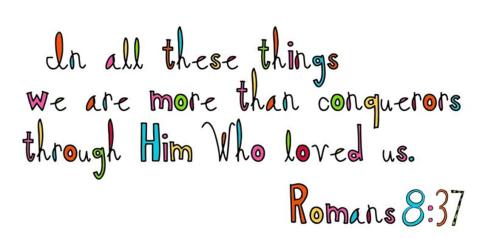 In all these things
we are more than conquerors
through Him Who loved us.
Romans 8:37